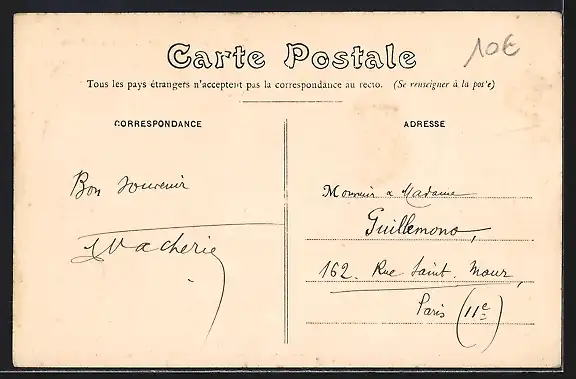 Carte Postale
10€
Tous les pays étrangers n'acceptent pas la correspondance au recto. (Se renseigner à la pos'e)
CORRESPONDANCE
ADRESSE
Bon souvenir
Vacherie
Monsieur & Madame
Guillemono,
162. Rue Saint. Maur,
Paris (11e)